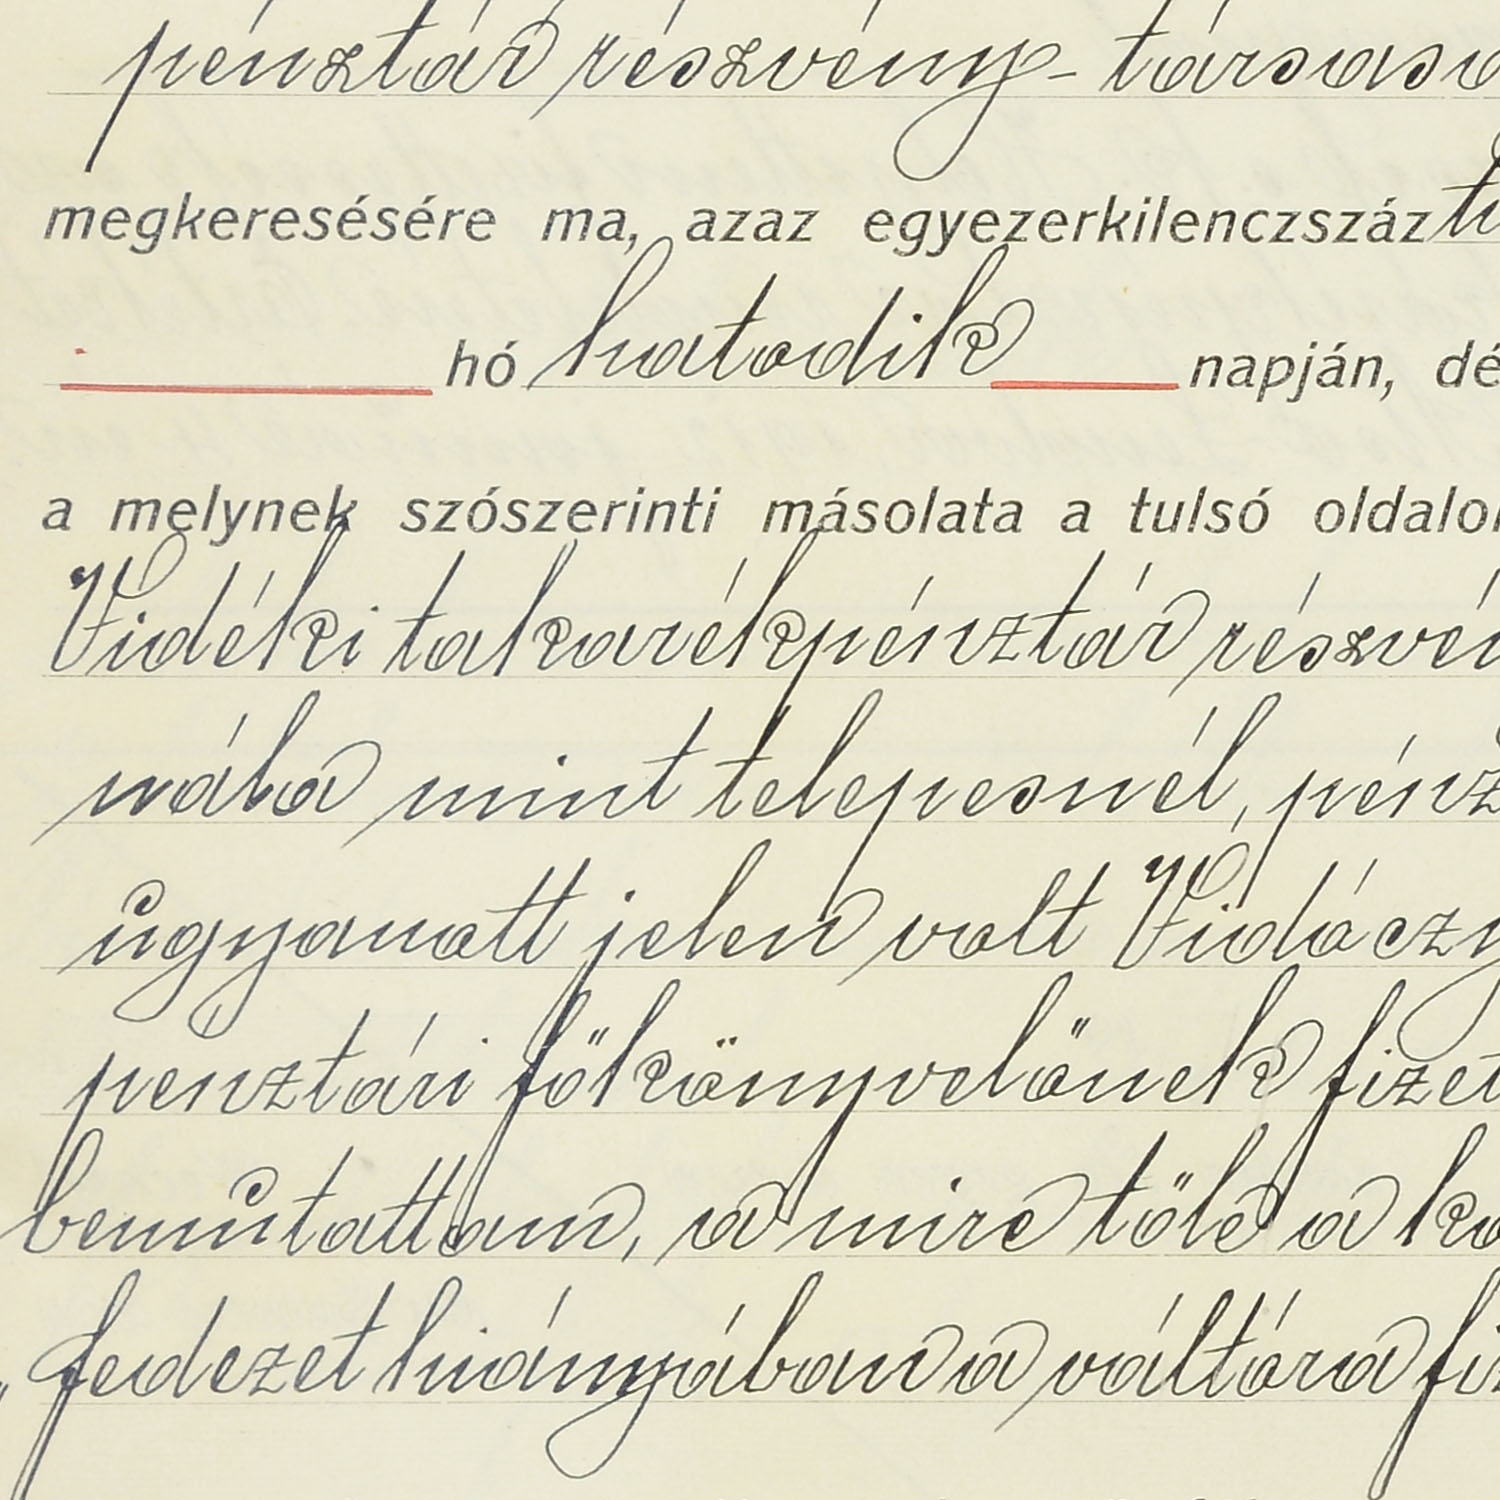 pénztár részvény-társasá
megkeresésére ma, azaz egyezerkilenczszáz
hó hatodik napján, dé
a melynek szószerinti másolata a tulsó oldalon
Vidéki takarékpénztár részvén
nála mint telepesnél, pénz
ugyanott jelen volt Vidáczy
pénztári főkönyvelőnek fizet
bemutattam, a mire tőle a ka
„fedezet hiányában a váltóra fiz